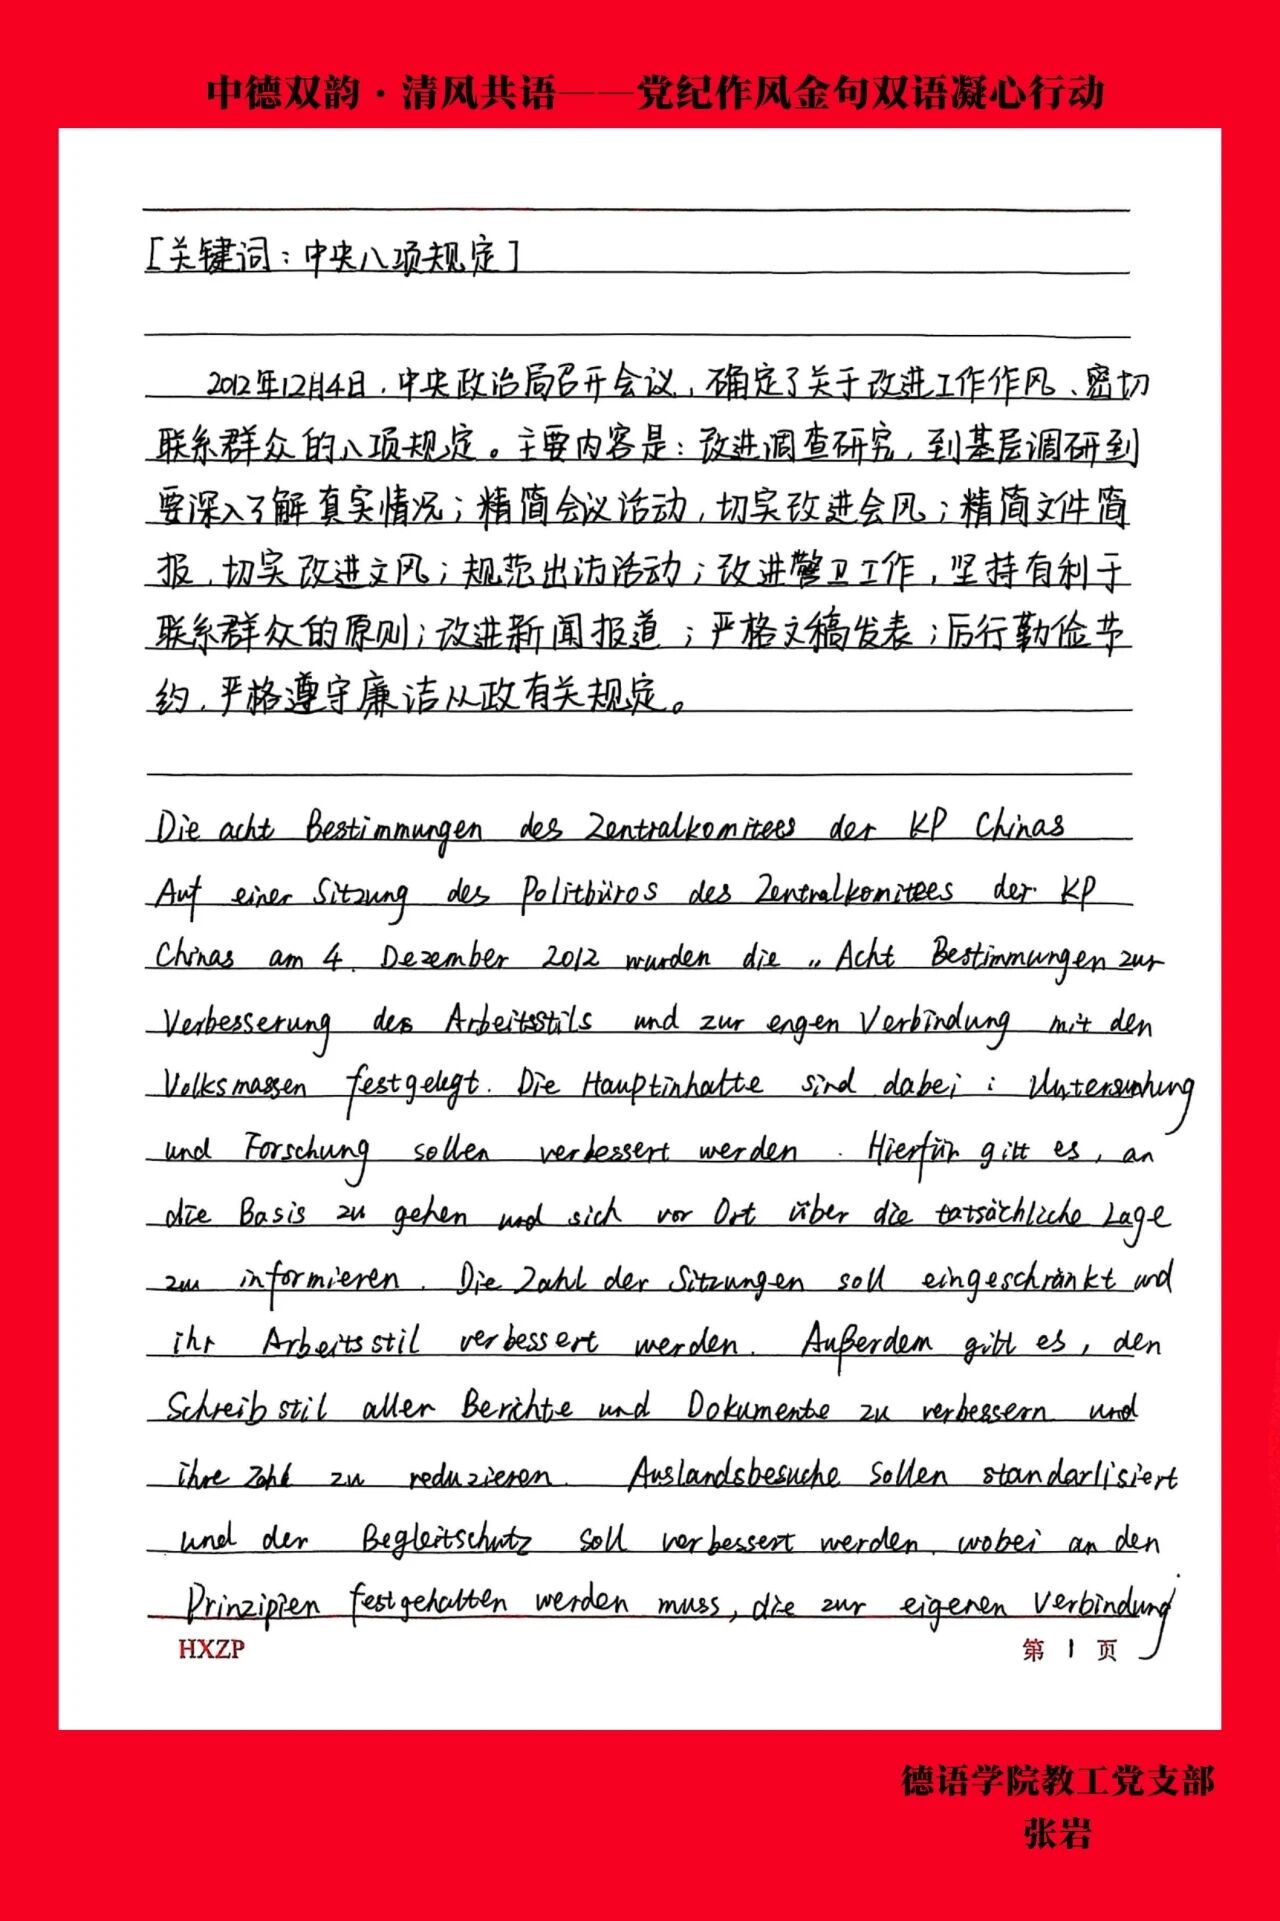 中德双韵·清风共语——党纪作风金句双语凝心行动
[关键词：中央八项规定]
2012年12月4日，中央政治局召开会议，确定了关于改进工作作风、密切
联系群众的八项规定。主要内容是：改进调查研究，到基层调研到
要深入了解真实情况；精简会议活动，切实改进会风；精简文件简
报，切实改进文风；规范出访活动；改进警卫工作，坚持有利于
联系群众的原则；改进新闻报道；严格文稿发表；厉行勤俭节
约，严格遵守廉洁从政有关规定。
Die acht Bestimmungen des Zentralkomitees der KP Chinas
Auf einer Sitzung des Politbüros des Zentralkomitees der KP
Chinas am 4. Dezember 2012 wurden die „Acht Bestimmungen zur
Verbesserung des Arbeitsstils und zur engen Verbindung mit den
Volksmassen festgelegt. Die Hauptinhalte sind dabei: Untersuchung
und Forschung sollen verbessert werden. Hierfür gilt es, an
die Basis zu gehen und sich vor Ort über die tatsächliche Lage
zu informieren. Die Zahl der Sitzungen soll eingeschränkt und
ihr Arbeitsstil verbessert werden. Außerdem gilt es, den
Schreibstil aller Berichte und Dokumente zu verbessern und
ihre Zahl zu reduzieren. Auslandsbesuche sollen standarlisiert
und der Begleitschutz soll verbessert werden, wobei an den
Prinzipien festgehalten werden muss, die zur eigenen Verbindung
HXZP 第 1 页
德语学院教工党支部
张岩